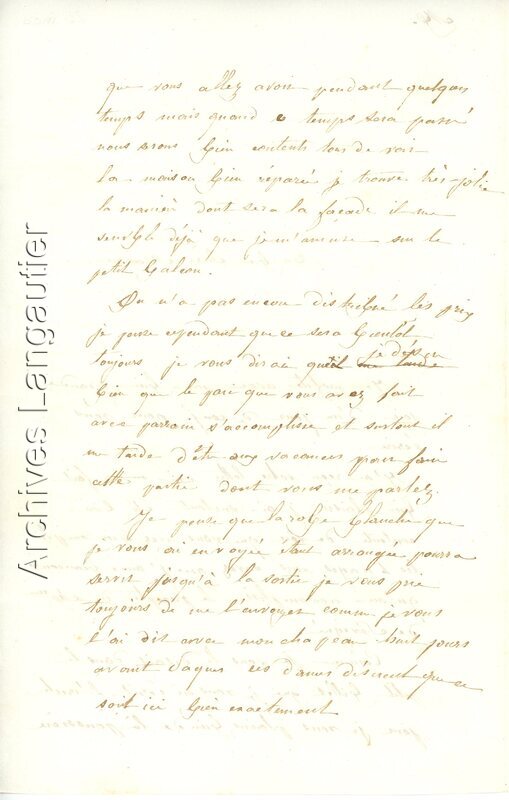 que vous allez avoir pendant quelques
temps mais quand ce temps sera passé
nous serons bien contents tous de voir
la maison bien réparée je trouve très-jolie
la manière dont sera la façade il me
semble déjà que je m'amuse sur le
petit balcon.
On n'a pas encore distribué les prix
je pense cependant que ce sera bientôt
toujours je vous dirai que je désire
bien que le pari que vous avez fait
avec parrain s'accomplisse et surtout il
me tarde d'être aux vacances pour faire
cette partie dont vous me parlez.
Je pense que la robe blanche que
je vous ai envoyée étant arrangée pourra
servir jusqu'à la sortie je vous prie
toujours de me l'envoyer comme je vous
l'ai dit avec mon chapeau huit jours
avant Pâques ces dames désirent que ce
soit ici bien exactement
Archives Langautier